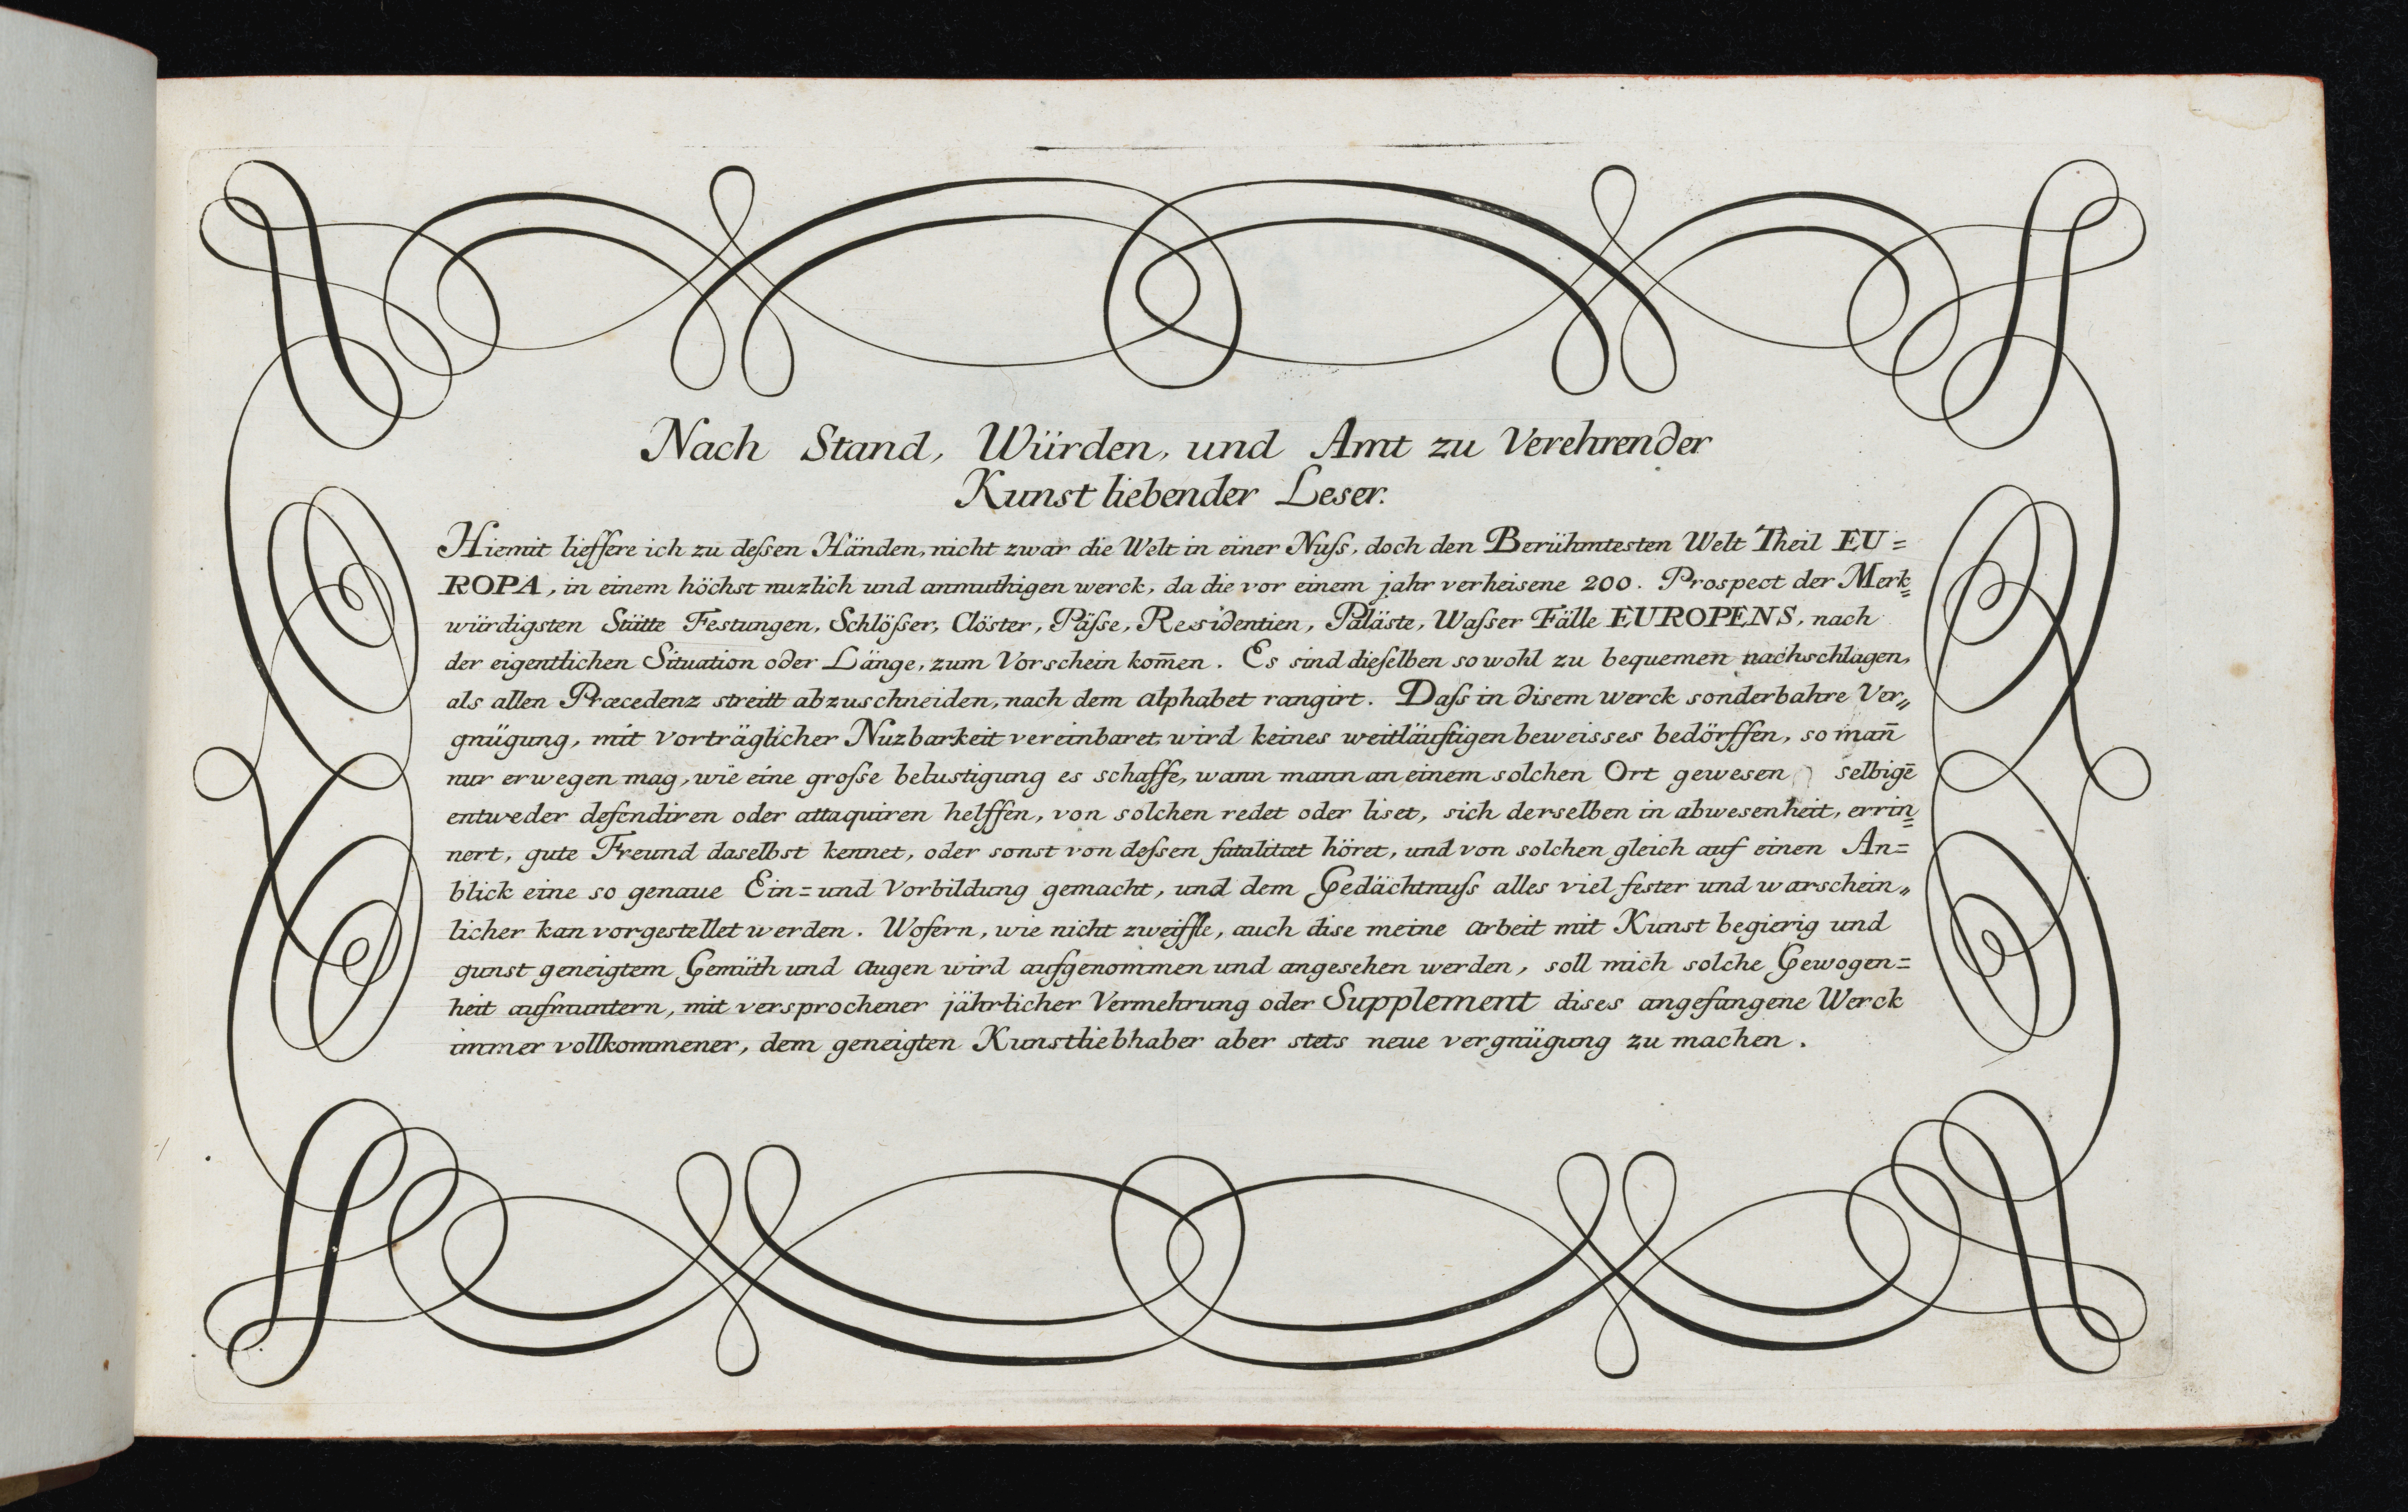 Nach Stand, Würden, und Amt zu Verehrender
Kunst liebender Leser.
Hiemit lieffere ich zu deſsen Händen, nicht zwar die Welt in einer Nuſs, doch den Berühmtesten Welt Theil EU=
ROPA, in einem höchst nuzlich und anmuthigen werck, da die vor einem jahr verheisene 200. Prospect der Merk=
würdigsten Stätte Festungen, Schlöſser, Clöster, Päſse, Residentien, Paläste, Waſser Fälle EUROPENS, nach
der eigentlichen Situation oder Länge, zum Vorschein kom̄en. Es sind dieſelben sowohl zu bequemen nachschlagen,
als allen Præcedenz streitt abzuschneiden, nach dem alphabet rangirt. Daſs in disem werck sonderbahre Ver„
gnügung, mit vorträglicher Nuzbarkeit vereinbaret, wird keines weitläuftigen beweisses bedörffen, so man̄
nur erwegen mag, wie eine groſse belustigung es schaffe, wann mann an einem solchen Ort gewesen selbigē
entweder defendiren oder attaquiren helffen, von solchen redet oder liset, sich derselben in abwesenheit, errin=
nert, gute Freund daselbst kennet, oder sonst von deſsen fatalitæt höret, und von solchen gleich auf einen An=
blick eine so genaue Ein= und Vorbildung gemacht, und dem Gedächtnuſs alles viel fester und warschein„
licher kan vorgestellet werden. Wofern, wie nicht zweiffle, auch dise meine arbeit mit Kunst begierig und
gunst geneigtem Gemüth und augen wird aufgenommen und angesehen werden, soll mich solche Gewogen=
heit aufmuntern, mit versprochener jährlicher Vermehrung oder Supplement dises angefangene Werck
immer vollkommener, dem geneigten Kunstliebhaber aber stets neue vergnügung zu machen.